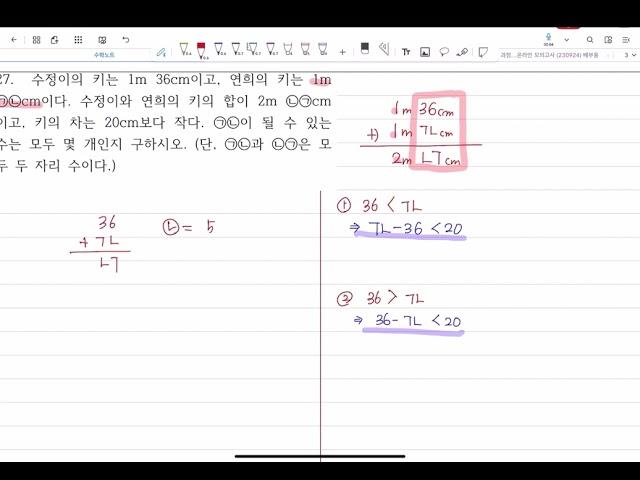 수학노트
과정...온라인 모의고사 (230924) 배부용
3
27. 수정이의 키는 1m 36cm이고, 연희의 키는 1m
㉠㉡cm이다. 수정이와 연희의 키의 합이 2m ㉡㉠cm
이고, 키의 차는 20cm보다 작다. ㉠㉡이 될 수 있는
수는 모두 몇 개인지 구하시오. (단, ㉠㉡과 ㉡㉠은 모
두 두 자리 수이다.)
1m 36cm
+) 1m ㄱㄴcm
2m ㄴㄱcm
36
+ ㄱㄴ
ㄴㄱ
㉡= 5
① 36 < ㄱㄴ
⇒ ㄱㄴ-36 <20
② 36 > ㄱㄴ
⇒ 36-ㄱㄴ <20